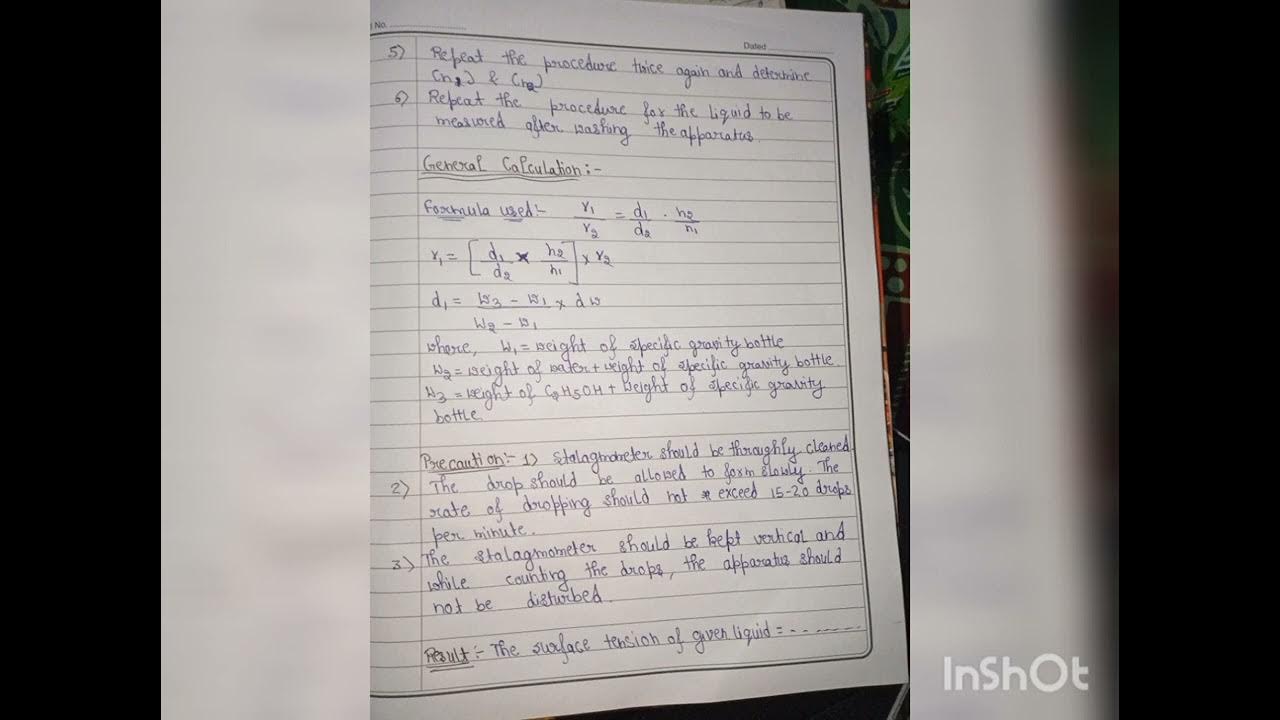 No.
Dated
5) Repeat the procedure twice again and determine
(n1) & (n2)
6) Repeat the procedure for the liquid to be
measured after washing the apparatus.
General Calculation:-
Formula used:- γ1/γ2 = d1/d2 . n2/n1
γ1 = [d1/d2 × n2/n1] × γ2
d1 = W3 - W1 / W2 - W1 × dw
where, W1 = weight of specific gravity bottle
W2 = weight of water + weight of specific gravity bottle.
W3 = weight of C2H5OH + Weight of specific gravity
bottle.
Precaution:- 1) Stalagmometer should be throughly cleaned.
2) The drop should be allowed to form slowly. The
rate of dropping should not exceed 15-20 drops
per minute.
3) The stalagmometer should be kept vertical and
while counting the drops, the apparatus should
not be disturbed.
Result:- The surface tension of given liquid = - - - - - -
InShOt